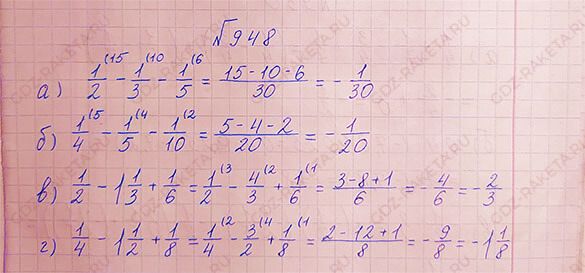 №948
а) 1/2⁽¹⁵ - 1/3⁽¹⁰ - 1/5⁽⁶ = (15-10-6)/30 = -1/30
б) 1/4⁽⁵ - 1/5⁽⁴ - 1/10⁽² = (5-4-2)/20 = -1/20
в) 1/2 - 1 1/3 + 1/6 = 1/2⁽³ - 4/3⁽² + 1/6⁽¹ = (3-8+1)/6 = -4/6 = -2/3
г) 1/4 - 1 1/2 + 1/8 = 1/4⁽² - 3/2⁽⁴ + 1/8⁽¹ = (2-12+1)/8 = -9/8 = -1 1/8
GDZ-RAKETA.RU